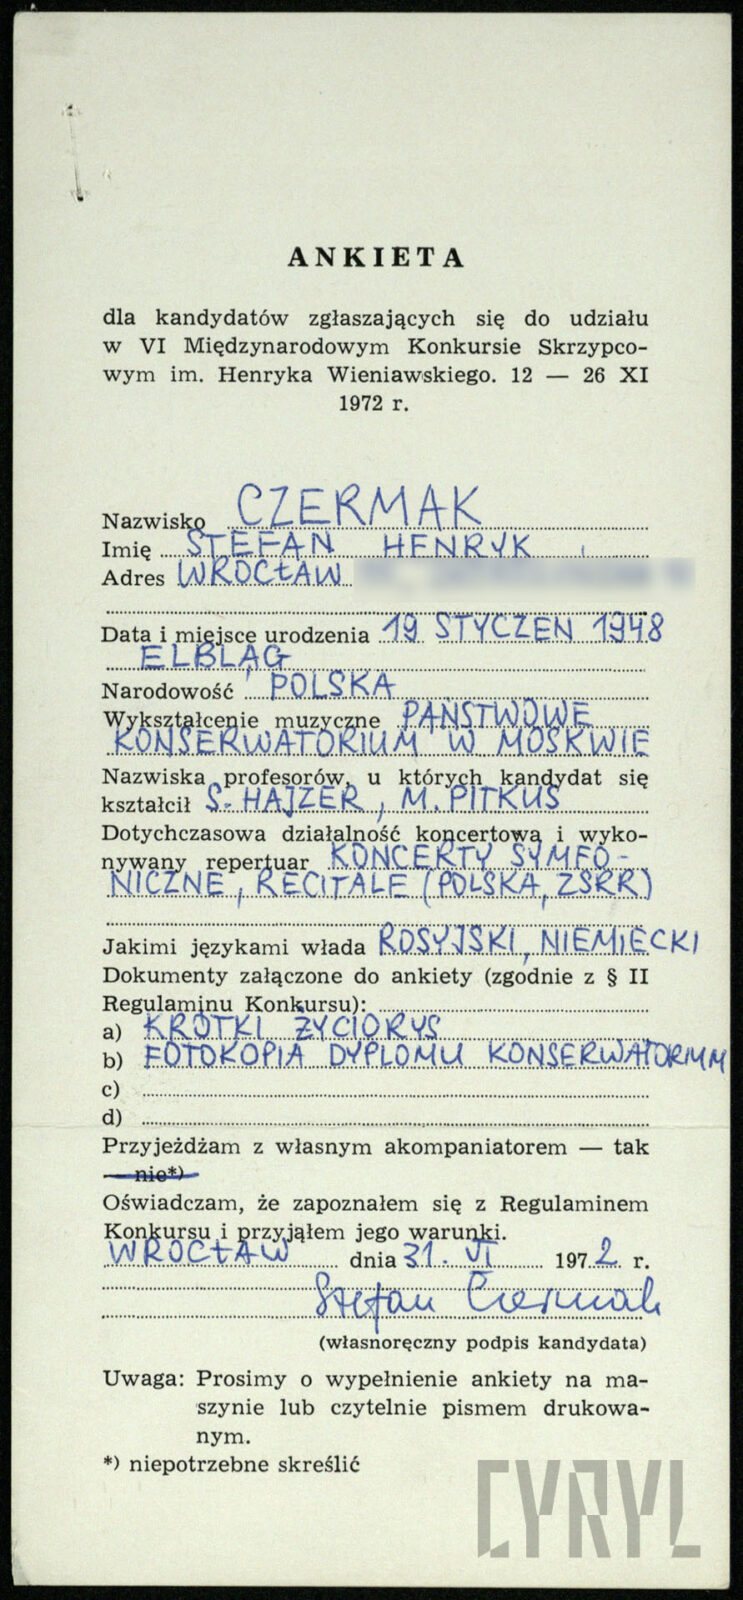 ANKIETA
dla kandydatów zgłaszających się do udziału
w VI Międzynarodowym Konkursie Skrzypco-
wym im. Henryka Wieniawskiego. 12 — 26 XI
1972 r.
Nazwisko CZERMAK
Imię STEFAN HENRYK
Adres WROCŁAW
Data i miejsce urodzenia 19 STYCZEŃ 1948
ELBLĄG
Narodowość POLSKA
Wykształcenie muzyczne PAŃSTWOWE
KONSERWATORIUM W MOSKWIE
Nazwiska profesorów, u których kandydat się
kształcił S. HAJZER, M. PITKUS
Dotychczasowa działalność koncertowa i wyko-
nywany repertuar KONCERTY SYMFO-
NICZNE, RECITALE (POLSKA, ZSRR)
Jakimi językami włada ROSYJSKI, NIEMIECKI
Dokumenty załączone do ankiety (zgodnie z § II
Regulaminu Konkursu):
a) KRÓTKI ŻYCIORYS
b) FOTOKOPIA DYPLOMU KONSERWATORIUM
c)
d)
Przyjeżdżam z własnym akompaniatorem — tak
— nie*)
Oświadczam, że zapoznałem się z Regulaminem
Konkursu i przyjąłem jego warunki.
WROCŁAW dnia 31. VI 1972 r.
Stefan Czermak
(własnoręczny podpis kandydata)
Uwaga: Prosimy o wypełnienie ankiety na ma-
szynie lub czytelnie pismem drukowa-
nym.
*) niepotrzebne skreślić
CYRYL